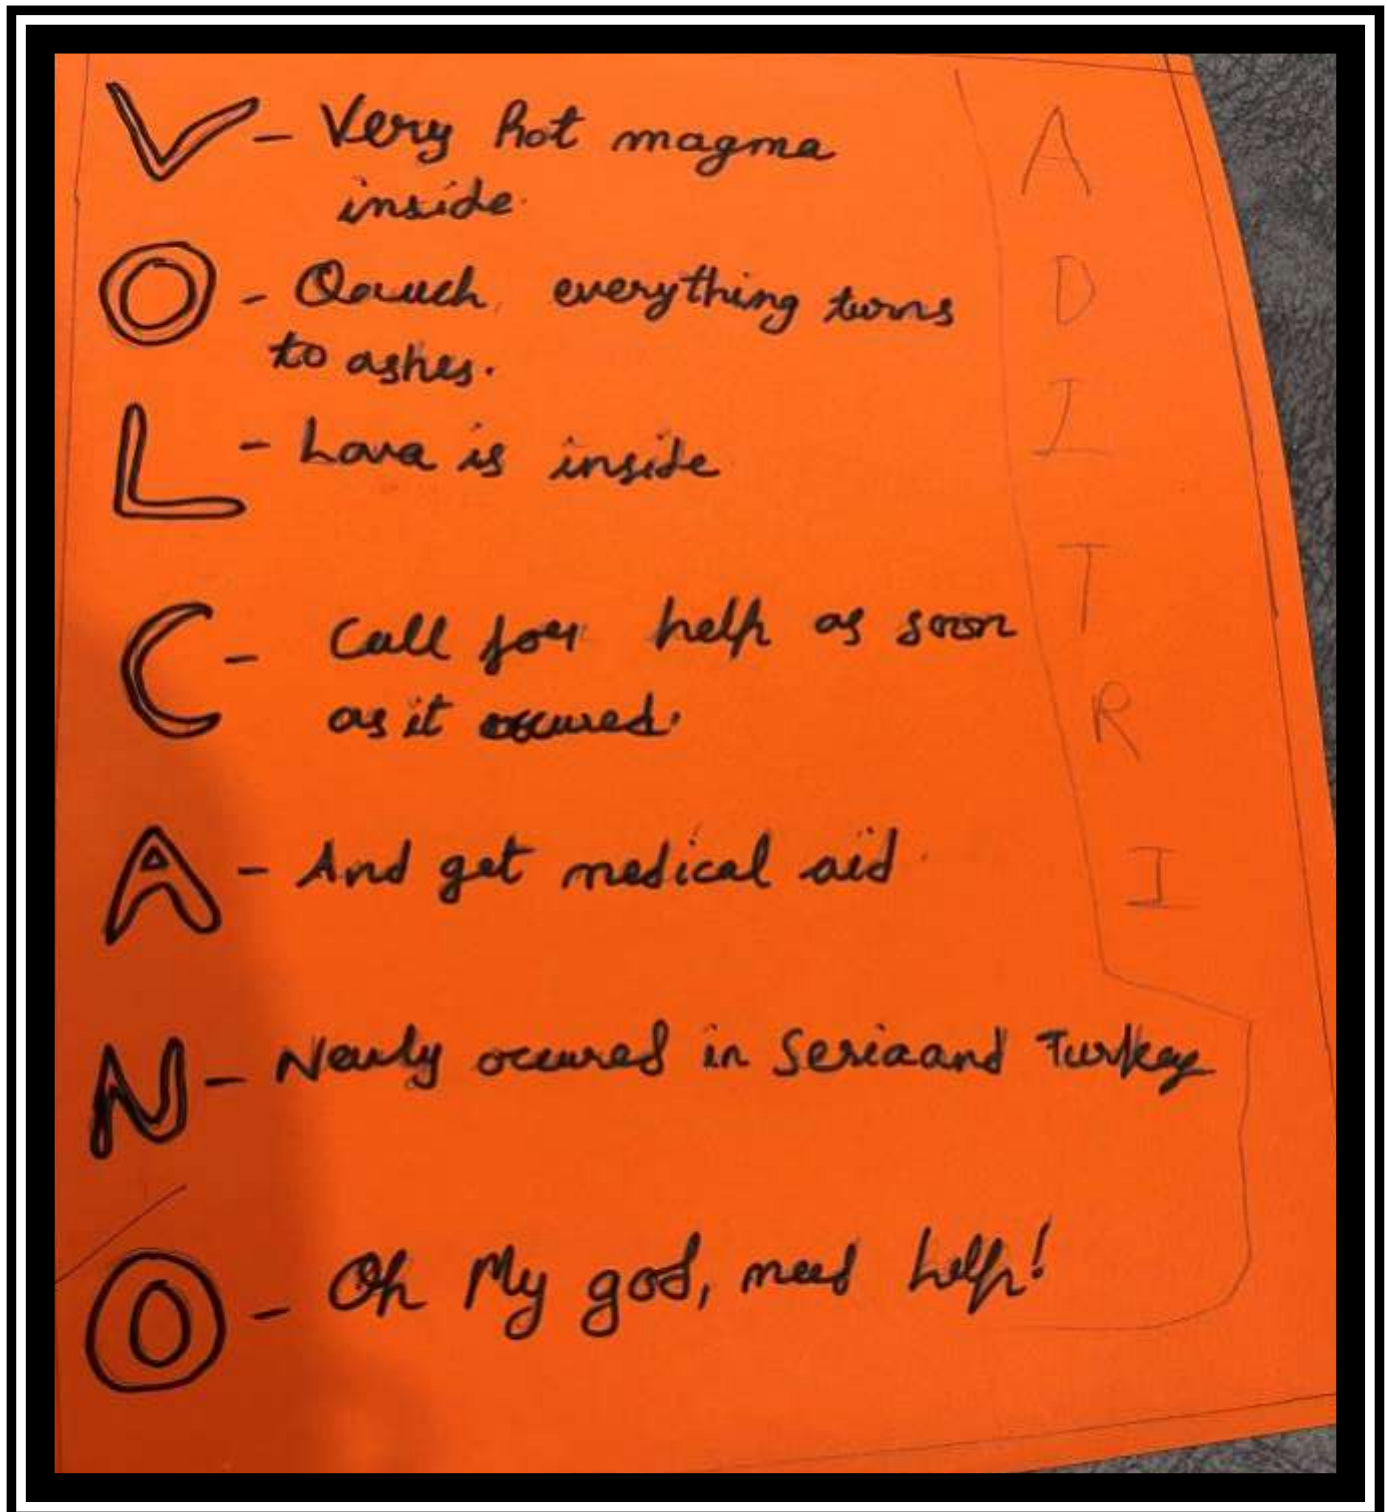 V - Very hot magma
inside.
O - Oouch, everything turns
to ashes.
L - Lava is inside
C - Call for help as soon
as it occured.
A - And get medical aid.
N - Newly occured in Seria and Turkey
O - Oh My god, need help!
A
D
I
T
R
I